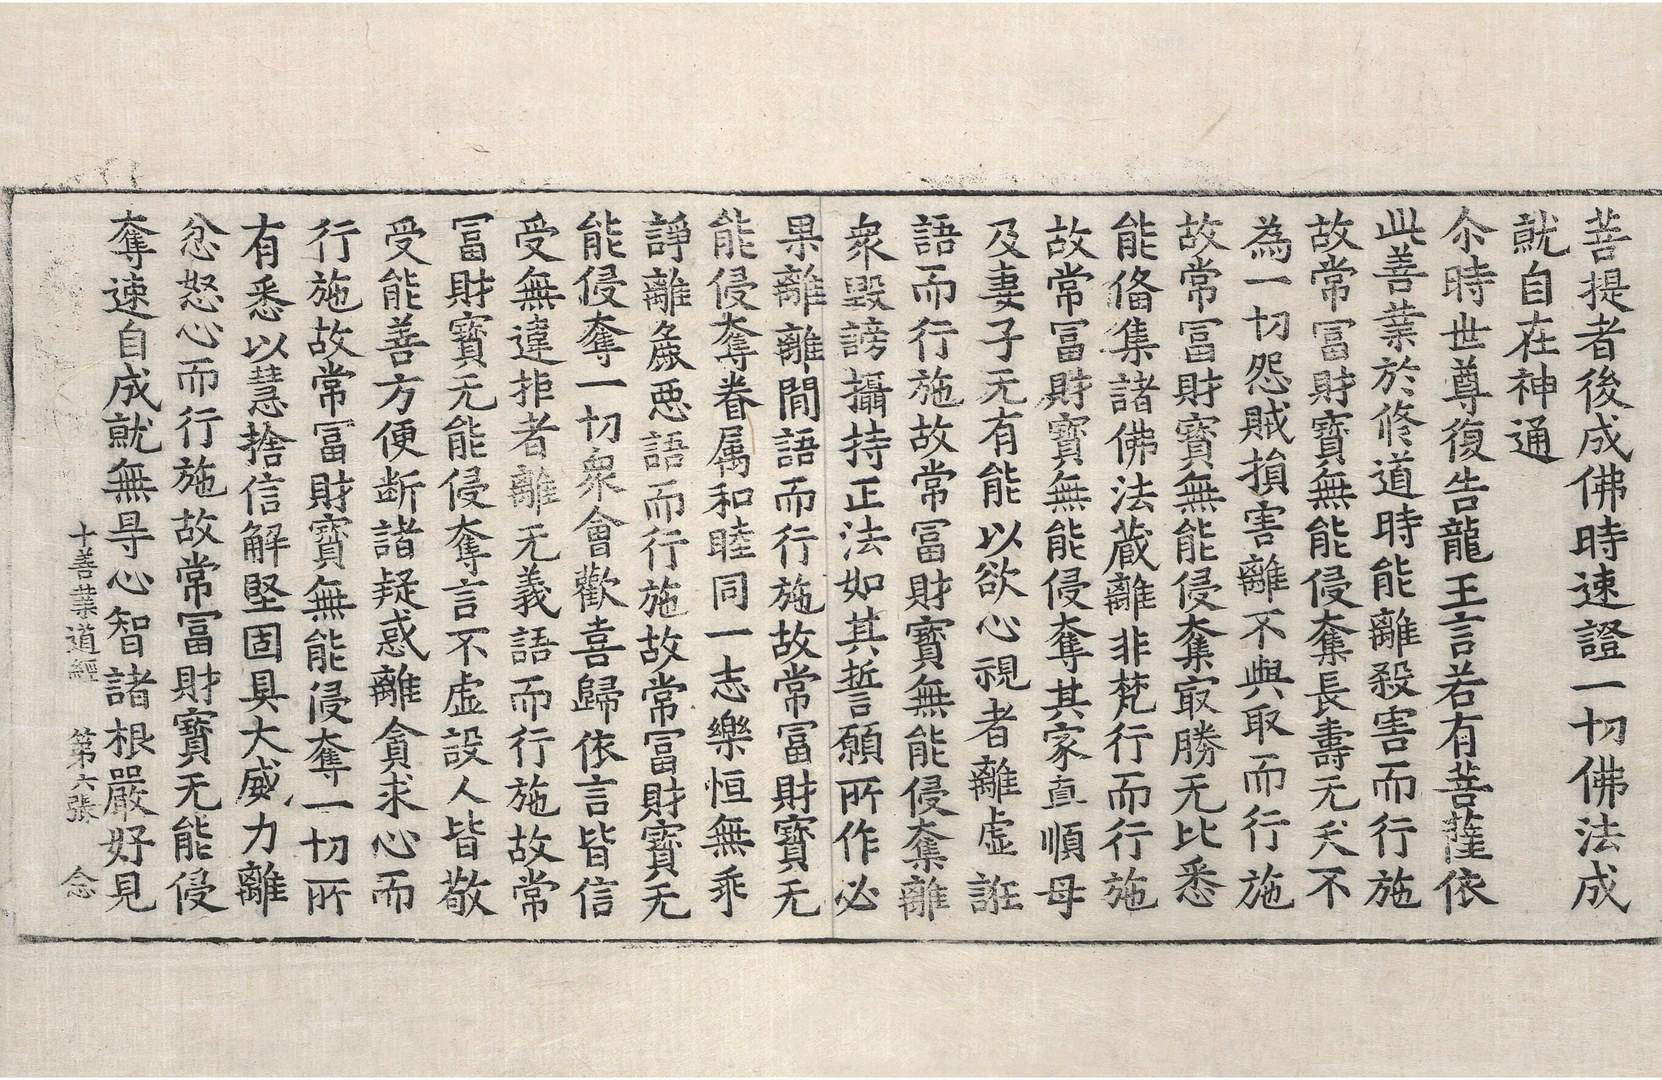 菩提者後成佛時速證一切佛法成
就自在神通
尒時世尊復告龍王言若有菩薩依
此善業於修道時能離殺害而行施
故常冨財寶無能侵奪長壽无夭不
為一切怨賊損害離不與取而行施
故常冨財寶無能侵奪㝡勝无比悉
能俻集諸佛法蔵離非梵行而行施
故常冨財寶無能侵奪其家直順母
及妻子无有能以欲心視者離虛誑
語而行施故常冨財寶無能侵奪離
衆毀謗攝持正法如其誓願所作必
果離離間語而行施故常冨財寶无
能侵奪眷属和睦同一志樂恒無乖
諍離麁惡語而行施故常冨財寶无
能侵奪一切衆會歡喜歸依言皆信
受無違拒者離无義語而行施故常
冨財寶无能侵奪言不虛設人皆敬
受能善方便断諸疑惑離貪求心而
行施故常冨財寶無能侵奪一切所
有悉以慧捨信解堅固具大威力離
忿怒心而行施故常冨財寶无能侵
奪速自成就無㝵心智諸根嚴好見
十善業道經 第六張 念